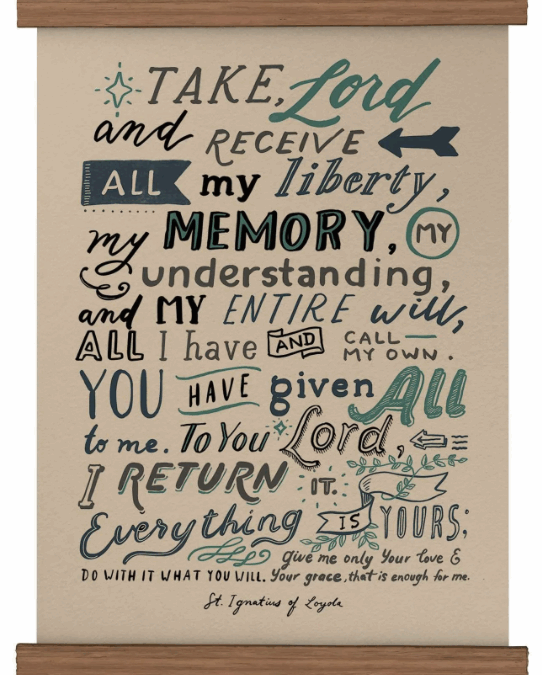 TAKE, Lord
and RECEIVE
ALL my liberty,
my MEMORY, MY
understanding,
and MY ENTIRE will,
ALL I have AND CALL
MY OWN.
YOU HAVE given All
to me. To You Lord,
I RETURN IT.
Everything IS YOURS;
DO WITH IT WHAT YOU WILL. Give me only Your love &
Your grace, that is enough for me.
St. Ignatius of Loyola